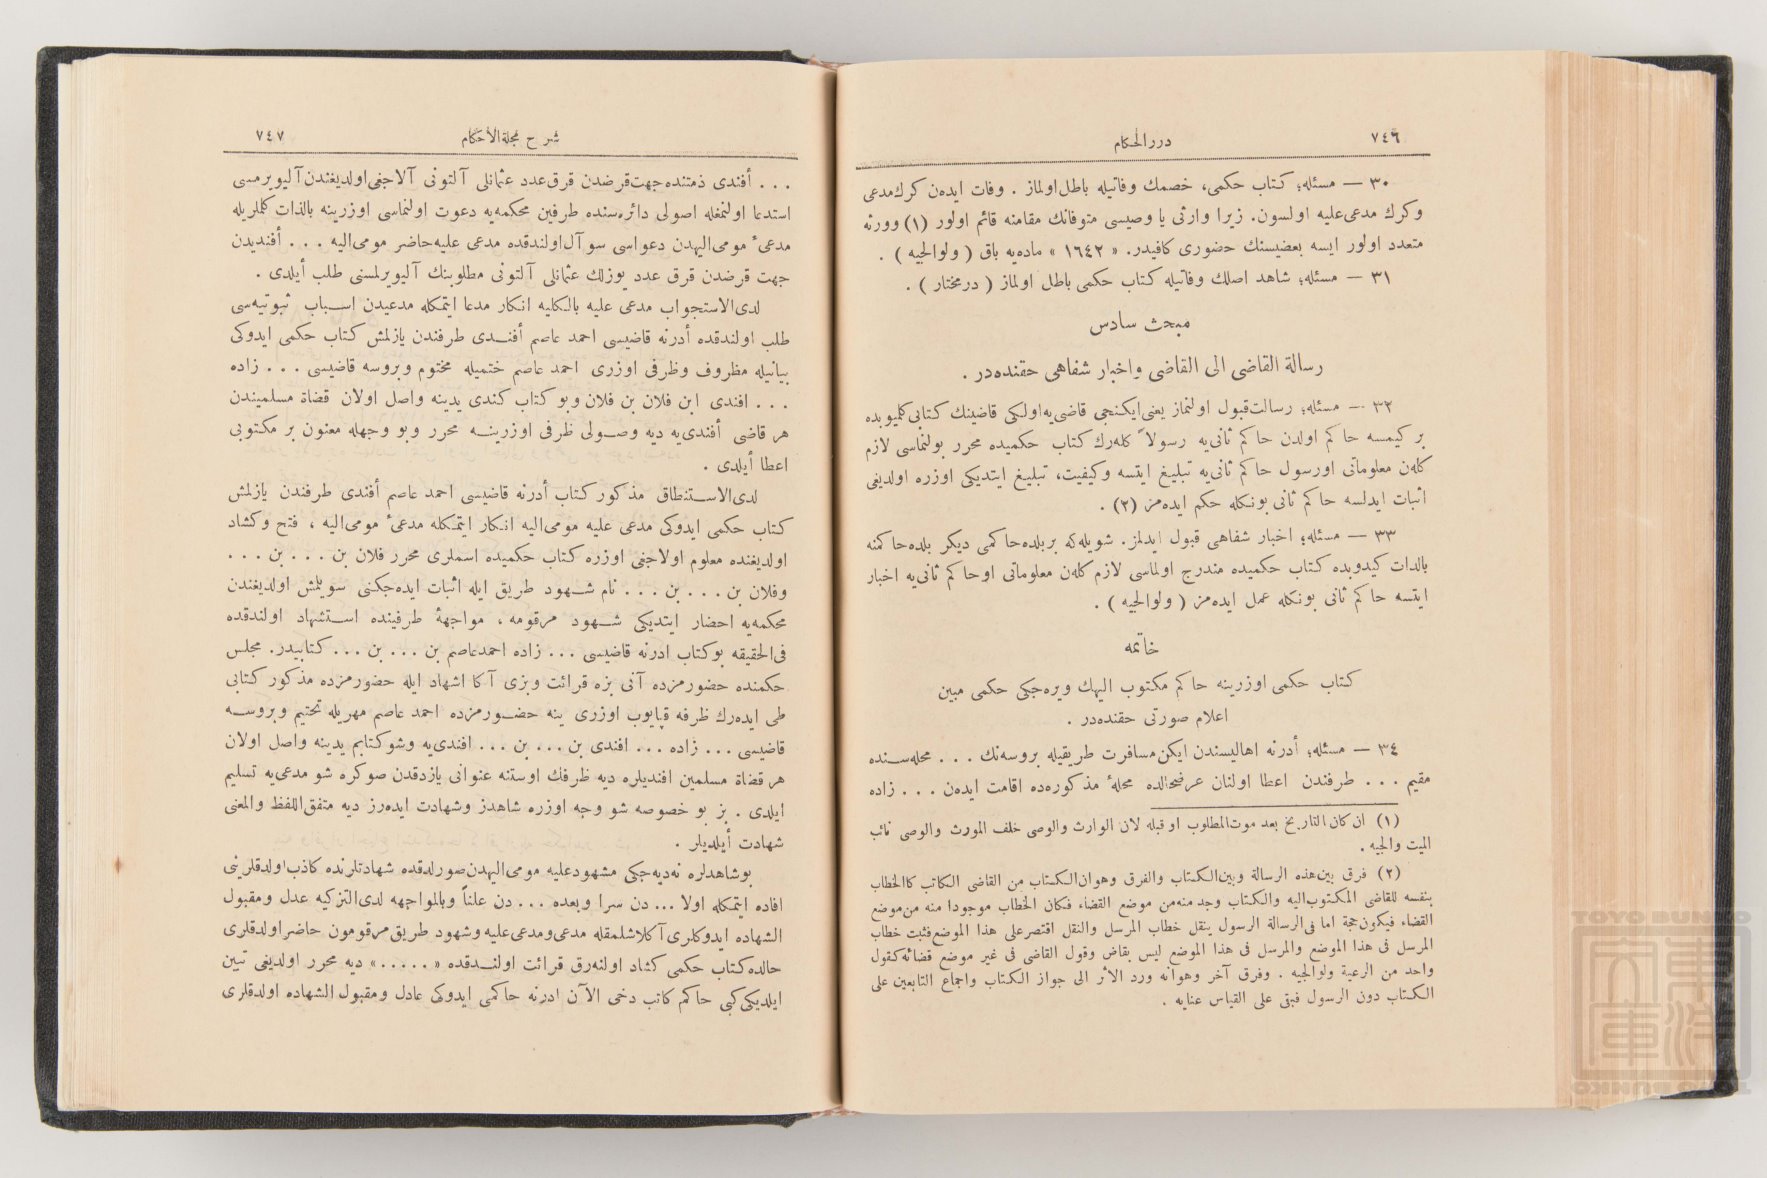 ٧٤٦
درر الحكام
٣٠ — مسئله؛ كتاب حكمی، خصمك وفاتيله باطل اولماز . وفات ايدەن كرك مدعی
وكرك مدعی عليه اولسون. زيرا وارثی يا وصيسی متوفانك مقامنه قائم اولور (١) وورثه
متعدد اولور ايسه بعضيسنك حضوری كافيدر. « ١٦٤٢ » ماده يه باق ( ولوالجيه ) .
٣١ — مسئله؛ شاهد اصلك وفاتيله كتاب حكمی باطل اولماز ( درمختار ) .
مبحث سادس
رسالة القاضی الی القاضی واخبار شفاهی حقنده در .
٣٢ — مسئله؛ رسالت قبول اولنماز يعنی ايكنجی قاضی يه اولكی قاضينك كتابی كلميوبده
بر كيمسه حاكم اولدن حاكم ثانی يه رسولاً كله رك كتاب حكميده محرر بولنماسی لازم
كلەن معلوماتی اورسول حاكم ثانی يه تبليغ ايتسه وكيفيت، تبليغ ايتديكی اوزره اولديغی
اثبات ايدلسه حاكم ثانی بونكله حكم ايده مز (٢) .
٣٣ — مسئله؛ اخبار شفاهی قبول ايدلمز. شويله كه بربلده حاكمی ديكر بلده حاكمنه
بالذات كيدوبده كتاب حكميده مندرج اولماسی لازم كلەن معلوماتی اوحاكم ثانی يه اخبار
ايتسه حاكم ثانی بونكله عمل ايده مز ( ولوالجيه ) .
خاتمه
كتاب حكمی اوزرينه حاكم مكتوب اليهك ويره جكی حكمی مبين
اعلام صورتی حقنده در .
٣٤ — مسئله؛ أدرنه اهاليسندن ايكن مسافرت طريقيله بروسه نك . . . محله سنده
مقيم . . . طرفندن اعطا اولنان عرضحالده محلهٔ مذكوره ده اقامت ايدەن . . . زاده
(١) ان كان التاريخ بعد موت المطلوب او قبله لان الوارث والوصی خلف المورث والوصی نائب
الميت والجيه .
(٢) فرق بين هذه الرسالة وبين الكتاب والفرق وهو ان الكتاب من القاضی الكاتب كالخطاب
بنفسه للقاضی المكتوب اليه والكتاب وجد منه من موضع القضاء فكان الخطاب موجودا منه من موضع
القضاء فيكون حجة اما فی الرسالة الرسول ينقل خطاب المرسل والنقل اقتصر علی هذا الموضع فثبت خطاب
المرسل فی هذا الموضع والمرسل فی هذا الموضع ليس بقاض وقول القاضی فی غير موضع قضائه كقول
واحد من الرعية ولوالجيه . وفرق آخر وهو انه ورد الأثر الی جواز الكتاب واجماع التابعين علی
الكتاب دون الرسول فبقی علی القياس عنايه .
شرح مجلة الأحكام
٧٤٧
. . . أفندی ذمتنده جهت قرضدن قرق عدد عثمانلی آلتونی آلاجغی اولديغندن آليويرمسی
استدعا اولنمغله اصولی دائره سنده طرفين محكمه يه دعوت اولنماسی اوزرينه بالذات كلملريله
مدعیٔ مومی اليهدن دعواسی سوآل اولندقده مدعی عليه حاضر مومی اليه . . . أفنديدن
جهت قرضدن قرق عدد يوزلك عثمانلی آلتونی مطلوبنك آليويرلمسنی طلب أيلدی .
لدی الاستجواب مدعی عليه بالكليه انكار مدعا ايتمكله مدعيدن اسباب ثبوتيه سی
طلب اولندقده أدرنه قاضيسی احمد عاصم أفندی طرفندن يازلمش كتاب حكمی ايدوكی
بيانيله مظروف وظرفی اوزری احمد عاصم ختميله مختوم وبروسه قاضيسی . . . زاده
. . . افندی ابن فلان بن فلان وبو كتاب كندی يدينه واصل اولان قضاة مسلميندن
هر قاضی أفندی يه ديه وصولی ظرفی اوزرينه محرر وبو وجهله معنون بر مكتوبی
اعطا أيلدی .
لدی الاستنطاق مذكور كتاب أدرنه قاضيسی احمد عاصم أفندی طرفندن يازلمش
كتاب حكمی ايدوكی مدعی عليه مومی اليه انكار ايتمكله مدعیٔ مومی اليه ، فتح وكشاد
اولديغنده معلوم اولاجغی اوزره كتاب حكميده اسملری محرر فلان بن . . . بن . . .
وفلان بن . . . بن . . . نام شهود طريق ايله اثبات ايده جكنی سويلمش اولديغندن
محكمه يه احضار ايتديكی شهود مرقومه ، مواجههٔ طرفينده استشهاد اولندقده
فی الحقيقه بوكتاب ادرنه قاضيسی . . . زاده احمدعاصم بن . . . بن . . . كتابيدر. مجلس
حكمنده حضورمزده آنی بزه قرائت وبزی آكا اشهاد ايله حضورمزده مذكور كتابی
طی ايده رك ظرفه قپايوب اوزری ينه حضورمزده احمد عاصم مهريله تختيم وبروسه
قاضيسی . . . زاده . . . افندی بن . . . بن . . . افندی يه وشوكتابم يدينه واصل اولان
هر قضاة مسلمين افنديلره ديه ظرفك اوستنه عنوانی يازدقدن صوكره شو مدعی يه تسليم
ايلدی . بز بو خصوصه شو وجه اوزره شاهدز وشهادت ايده رز ديه متفق اللفظ والمعنی
شهادت أيلديلر .
بوشاهدلره نه ديه جكی مشهودعليه مومی اليهدن صورلدقده شهادتلرنده كاذب اولدقلرينی
افاده ايتمكله اولا ... دن سرا وبعده ... دن علناً وبالمواجهه لدی التزكيه عدل ومقبول
الشهاده ايدوكلری آكلاشلمقله مدعی ومدعی عليه وشهود طريق مرقومون حاضر اولدقلری
حالده كتاب حكمی كشاد اولنه رق قرائت اولندقده « . . . . . » ديه محرر اولديغی تبين
ايلديكی كبی حاكم كاتب دخی الآن ادرنه حاكمی ايدوكی عادل ومقبول الشهاده اولدقلری
TOYO BUNKO
東洋文庫
TOYO BUNKO